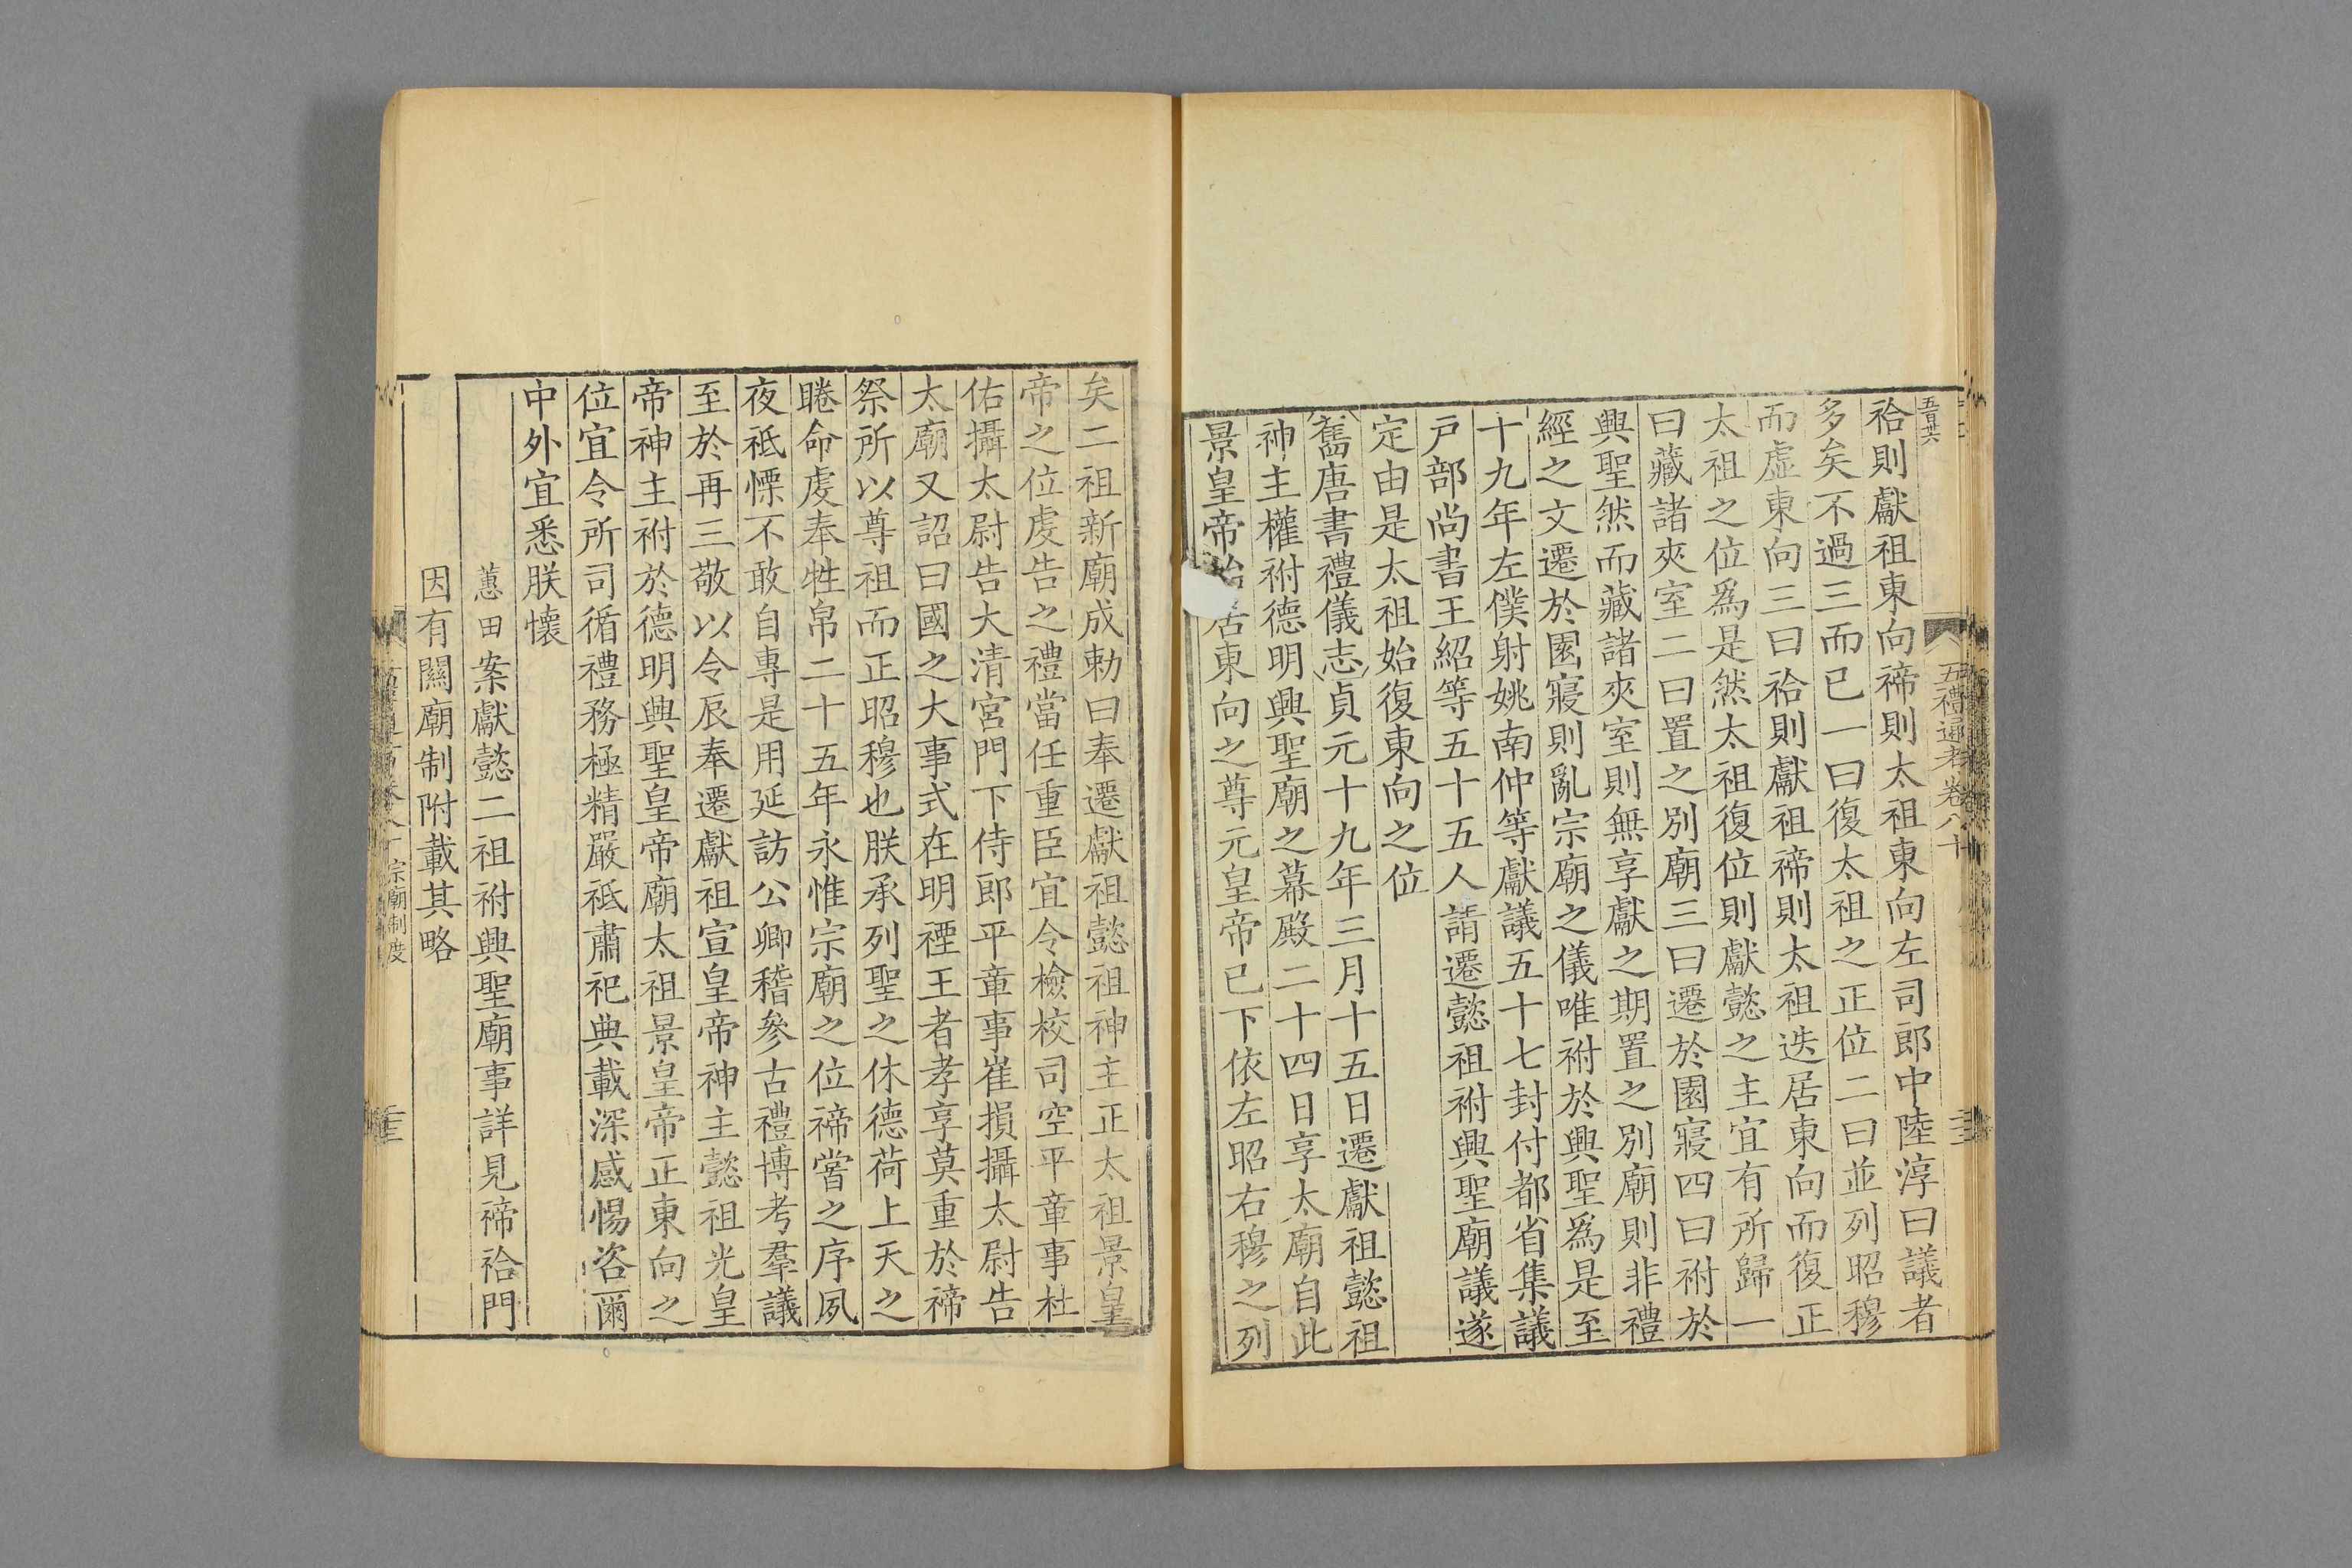 五百六
五禮通考卷八十
祫則獻祖東向禘則太祖東向左司郎中陸淳曰議者
多矣不過三而已一曰復太祖之正位二曰並列昭穆
而虛東向三曰祫則獻祖禘則太祖迭居東向而復正
太祖之位爲是然太祖復位則獻懿之主宜有所歸一
曰藏諸夾室二曰置之別廟三曰遷於園寢四曰祔於
興聖然而藏諸夾室則無享獻之期置之別廟則非禮
經之文遷於園寢則亂宗廟之儀唯祔於興聖爲是至
十九年左僕射姚南仲等獻議五十七封付都省集議
戸部尚書王紹等五十五人請遷懿祖祔興聖廟議遂
定由是太祖始復東向之位
舊唐書禮儀志貞元十九年三月十五日遷獻祖懿祖
神主權祔德明興聖廟之幕殿二十四日享太廟自此
景皇帝始居東向之尊元皇帝已下依左昭右穆之列
矣二祖新廟成勅曰奉遷獻祖懿祖神主正太祖景皇
帝之位虔告之禮當任重臣宜令檢校司空平章事杜
佑攝太尉告大清宮門下侍郎平章事崔損攝太尉告
太廟又詔曰國之大事式在明禋王者孝享莫重於禘
祭所以尊祖而正昭穆也朕承列聖之休德荷上天之
睠命虔奉牲帛二十五年永惟宗廟之位禘嘗之序夙
夜祗慄不敢自專是用延訪公卿稽參古禮博考羣議
至於再三敬以令辰奉遷獻祖宣皇帝神主懿祖光皇
帝神主祔於德明興聖皇帝廟太祖景皇帝正東向之
位宜令所司循禮務極精嚴祗肅祀典載深感惕咨爾
中外宜悉朕懷
蕙田案獻懿二祖祔興聖廟事詳見禘祫門
因有關廟制附載其略
宗廟制度